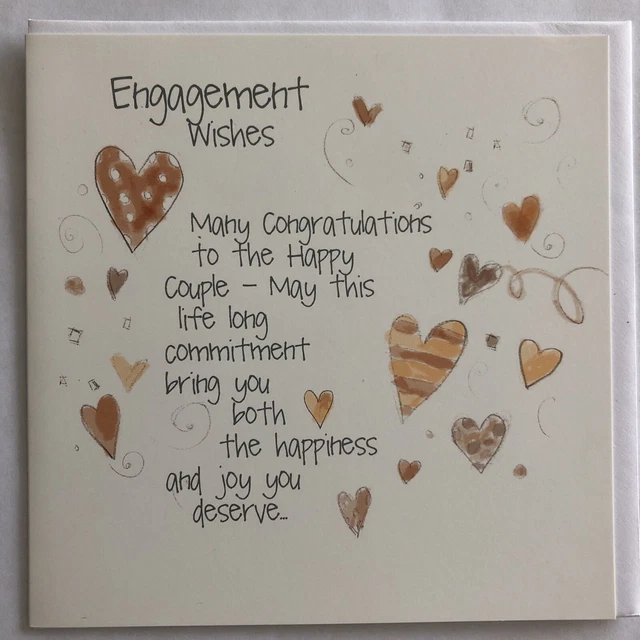 Engagement
Wishes
Many Congratulations
to the Happy
Couple - May this
life long
commitment
bring you
both
the happiness
and joy you
deserve...